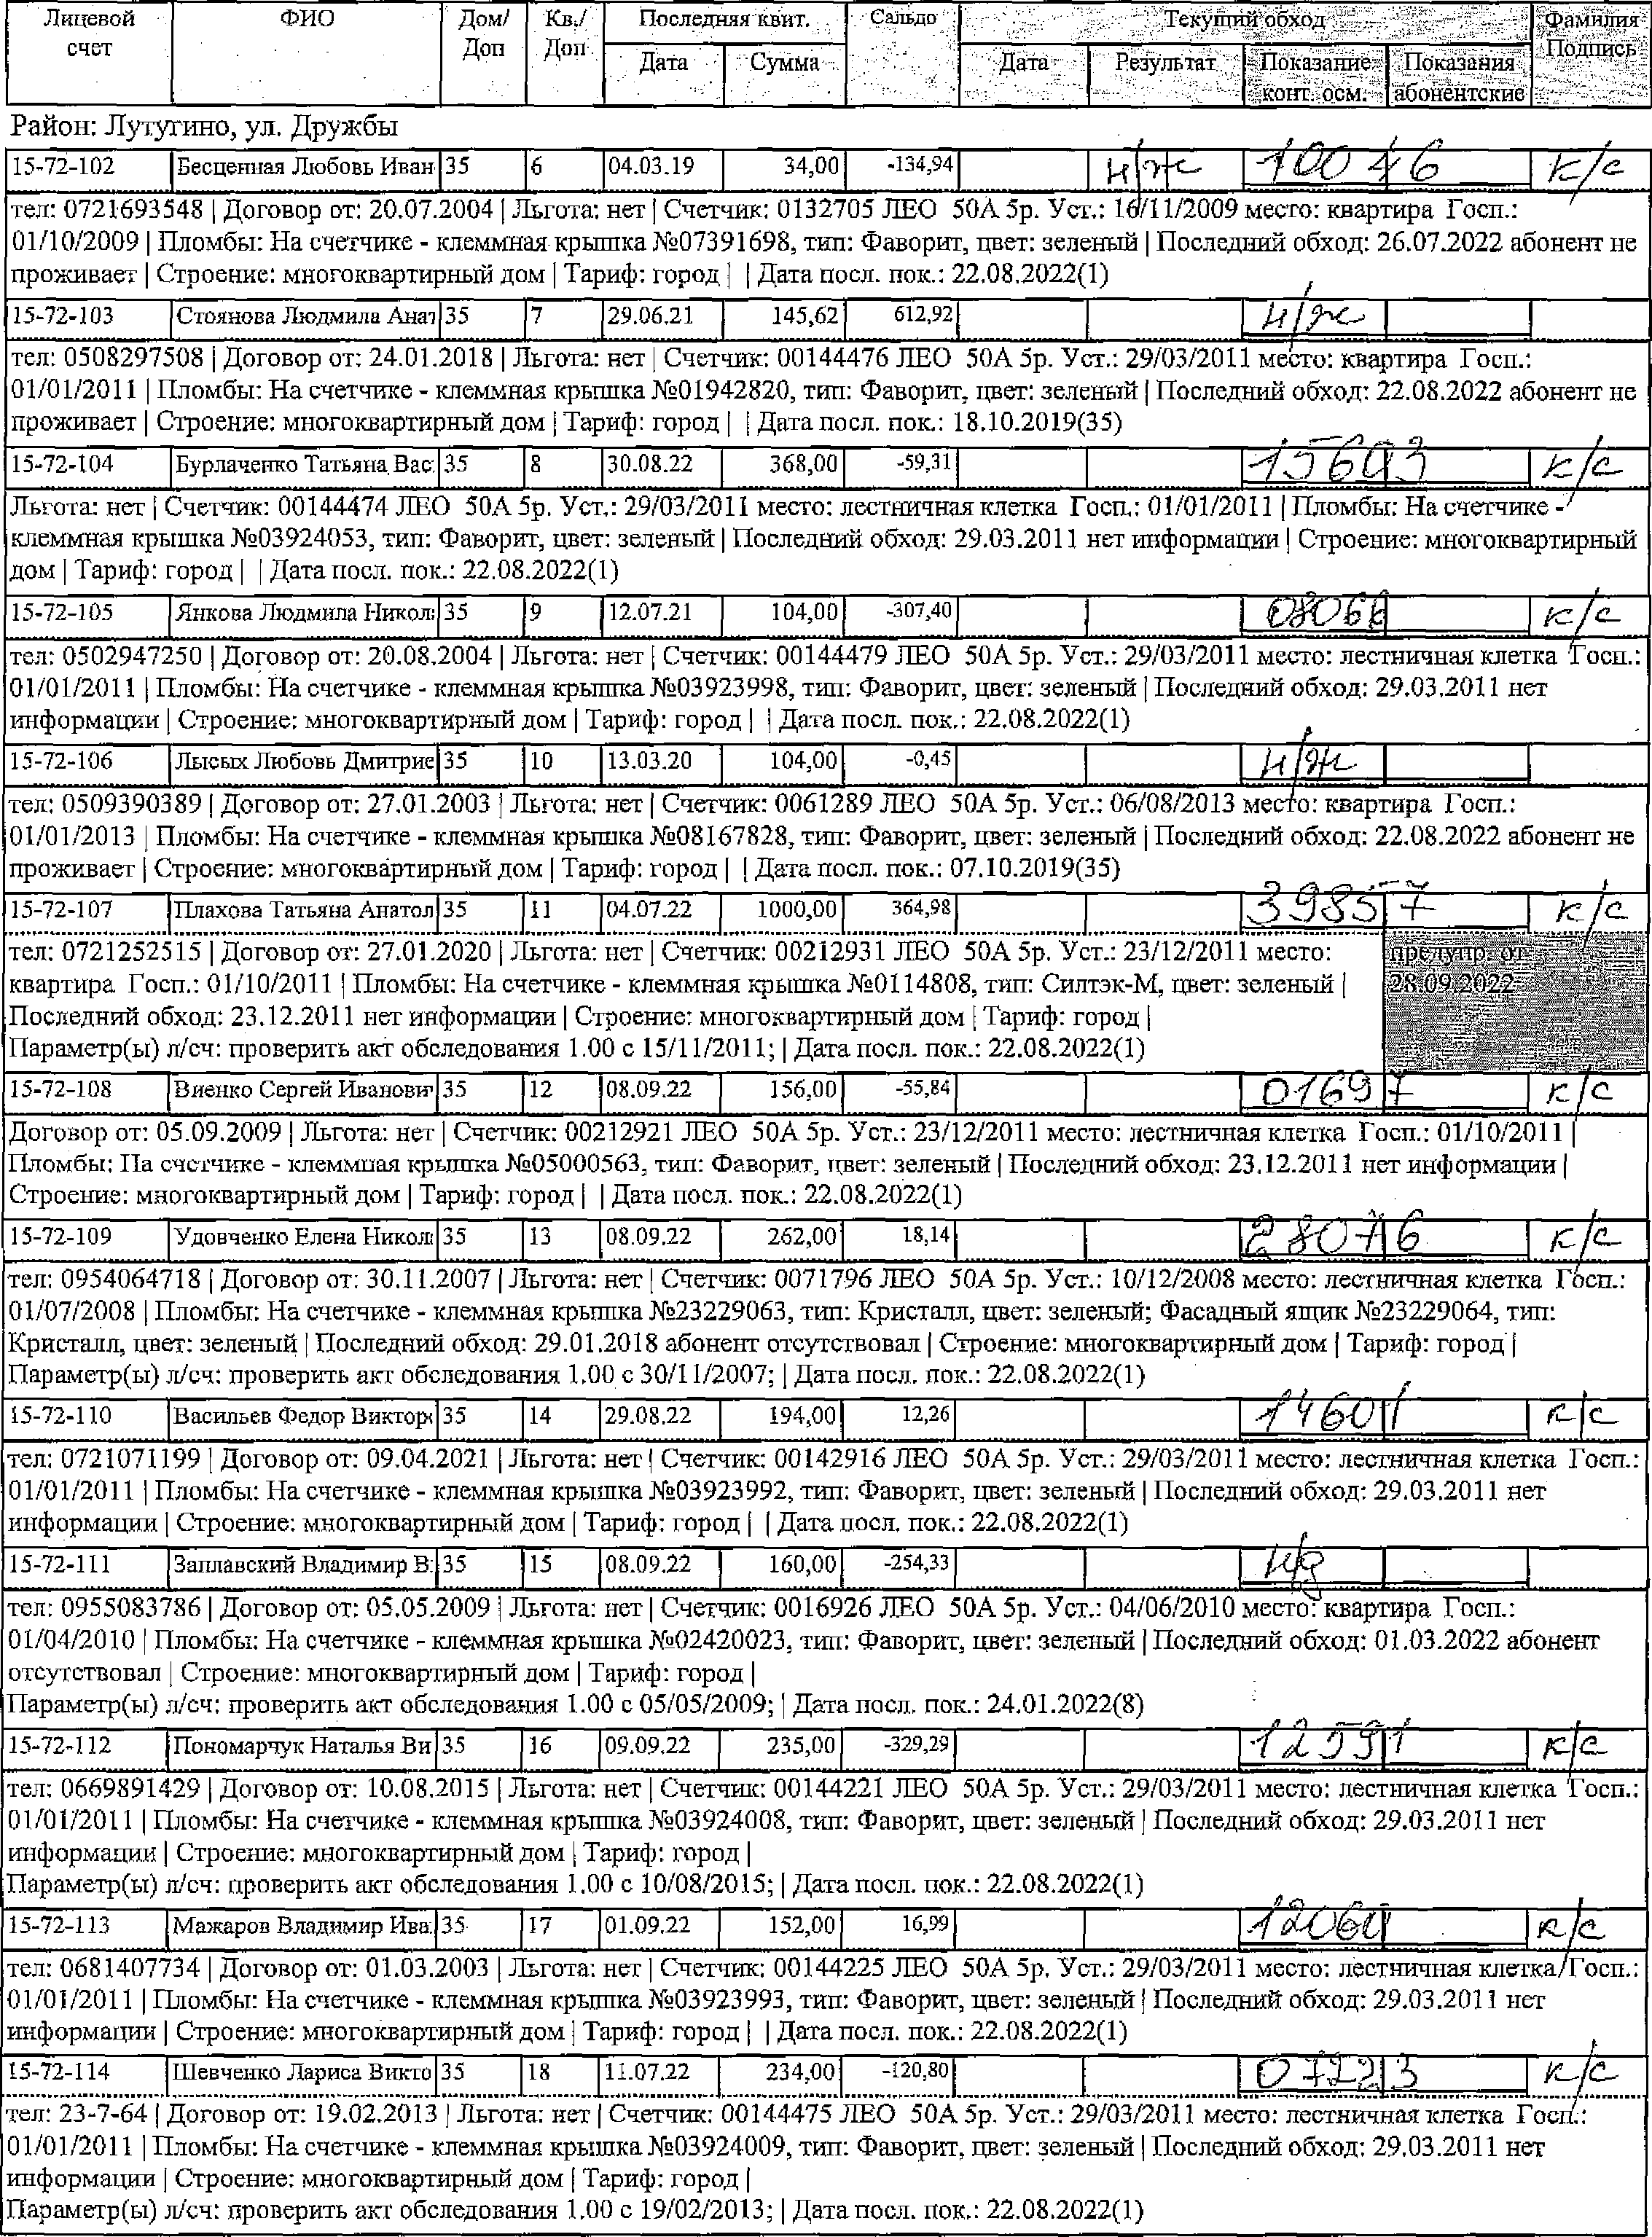 Лицевой счет | ФИО | Дом/ Доп | Кв./ Доп | Последняя квит. | Сальдо | Текущий обход | Фамилия Подпись
Дата | Сумма | Дата | Результат | Показание конт. осм. | Показания абонентские
Район: Лутугино, ул. Дружбы
15-72-102 | Бесценная Любовь Иван | 35 | 6 | 04.03.19 | 34,00 | -134,94 | н/ж | 10046 | к/с
тел: 0721693548 | Договор от: 20.07.2004 | Льгота: нет | Счетчик: 0132705 ЛЕО 50А 5р. Уст.: 16/11/2009 место: квартира Госп.:
01/10/2009 | Пломбы: На счетчике - клеммная крышка №07391698, тип: Фаворит, цвет: зеленый | Последний обход: 26.07.2022 абонент не
проживает | Строение: многоквартирный дом | Тариф: город | | Дата посл. пок.: 22.08.2022(1)
15-72-103 | Стоянова Людмила Анат | 35 | 7 | 29.06.21 | 145,62 | 612,92 | н/ж
тел: 0508297508 | Договор от: 24.01.2018 | Льгота: нет | Счетчик: 00144476 ЛЕО 50А 5р. Уст.: 29/03/2011 место: квартира Госп.:
01/01/2011 | Пломбы: На счетчике - клеммная крышка №01942820, тип: Фаворит, цвет: зеленый | Последний обход: 22.08.2022 абонент не
проживает | Строение: многоквартирный дом | Тариф: город | | Дата посл. пок.: 18.10.2019(35)
15-72-104 | Бурлаченко Татьяна Вас | 35 | 8 | 30.08.22 | 368,00 | -59,31 | 15603 | к/с
Льгота: нет | Счетчик: 00144474 ЛЕО 50А 5р. Уст.: 29/03/2011 место: лестничная клетка Госп.: 01/01/2011 | Пломбы: На счетчике -
клеммная крышка №03924053, тип: Фаворит, цвет: зеленый | Последний обход: 29.03.2011 нет информации | Строение: многоквартирный
дом | Тариф: город | | Дата посл. пок.: 22.08.2022(1)
15-72-105 | Янкова Людмила Никол | 35 | 9 | 12.07.21 | 104,00 | -307,40 | 08066 | к/с
тел: 0502947250 | Договор от: 20.08.2004 | Льгота: нет | Счетчик: 00144479 ЛЕО 50А 5р. Уст.: 29/03/2011 место: лестничная клетка Госп.:
01/01/2011 | Пломбы: На счетчике - клеммная крышка №03923998, тип: Фаворит, цвет: зеленый | Последний обход: 29.03.2011 нет
информации | Строение: многоквартирный дом | Тариф: город | | Дата посл. пок.: 22.08.2022(1)
15-72-106 | Лысых Любовь Дмитрие | 35 | 10 | 13.03.20 | 104,00 | -0,45 | н/ж
тел: 0509390389 | Договор от: 27.01.2003 | Льгота: нет | Счетчик: 0061289 ЛЕО 50А 5р. Уст.: 06/08/2013 место: квартира Госп.:
01/01/2013 | Пломбы: На счетчике - клеммная крышка №08167828, тип: Фаворит, цвет: зеленый | Последний обход: 22.08.2022 абонент не
проживает | Строение: многоквартирный дом | Тариф: город | | Дата посл. пок.: 07.10.2019(35)
15-72-107 | Плахова Татьяна Анатол | 35 | 11 | 04.07.22 | 1000,00 | 364,98 | 39857 | к/с
тел: 0721252515 | Договор от: 27.01.2020 | Льгота: нет | Счетчик: 00212931 ЛЕО 50А 5р. Уст.: 23/12/2011 место: | предупр. от
квартира Госп.: 01/10/2011 | Пломбы: На счетчике - клеммная крышка №0114808, тип: Силтэк-М, цвет: зеленый | 28.09.2022
Последний обход: 23.12.2011 нет информации | Строение: многоквартирный дом | Тариф: город |
Параметр(ы) л/сч: проверить акт обследования 1.00 с 15/11/2011; | Дата посл. пок.: 22.08.2022(1)
15-72-108 | Виенко Сергей Иванови | 35 | 12 | 08.09.22 | 156,00 | -55,84 | 01697 | к/с
Договор от: 05.09.2009 | Льгота: нет | Счетчик: 00212921 ЛЕО 50А 5р. Уст.: 23/12/2011 место: лестничная клетка Госп.: 01/10/2011 |
Пломбы: На счетчике - клеммная крышка №05000563, тип: Фаворит, цвет: зеленый | Последний обход: 23.12.2011 нет информации |
Строение: многоквартирный дом | Тариф: город | | Дата посл. пок.: 22.08.2022(1)
15-72-109 | Удовченко Елена Никол | 35 | 13 | 08.09.22 | 262,00 | 18,14 | 28076 | к/с
тел: 0954064718 | Договор от: 30.11.2007 | Льгота: нет | Счетчик: 0071796 ЛЕО 50А 5р. Уст.: 10/12/2008 место: лестничная клетка Госп.:
01/07/2008 | Пломбы: На счетчике - клеммная крышка №23229063, тип: Кристалл, цвет: зеленый; Фасадный ящик №23229064, тип:
Кристалл, цвет: зеленый | Последний обход: 29.01.2018 абонент отсутствовал | Строение: многоквартирный дом | Тариф: город |
Параметр(ы) л/сч: проверить акт обследования 1.00 с 30/11/2007; | Дата посл. пок.: 22.08.2022(1)
15-72-110 | Васильев Федор Виктор | 35 | 14 | 29.08.22 | 194,00 | 12,26 | 14601 | к/с
тел: 0721071199 | Договор от: 09.04.2021 | Льгота: нет | Счетчик: 00142916 ЛЕО 50А 5р. Уст.: 29/03/2011 место: лестничная клетка Госп.:
01/01/2011 | Пломбы: На счетчике - клеммная крышка №03923992, тип: Фаворит, цвет: зеленый | Последний обход: 29.03.2011 нет
информации | Строение: многоквартирный дом | Тариф: город | | Дата посл. пок.: 22.08.2022(1)
15-72-111 | Заплавский Владимир В | 35 | 15 | 08.09.22 | 160,00 | -254,33 | н/д
тел: 0955083786 | Договор от: 05.05.2009 | Льгота: нет | Счетчик: 0016926 ЛЕО 50А 5р. Уст.: 04/06/2010 место: квартира Госп.:
01/04/2010 | Пломбы: На счетчике - клеммная крышка №02420023, тип: Фаворит, цвет: зеленый | Последний обход: 01.03.2022 абонент
отсутствовал | Строение: многоквартирный дом | Тариф: город |
Параметр(ы) л/сч: проверить акт обследования 1.00 с 05/05/2009; | Дата посл. пок.: 24.01.2022(8)
15-72-112 | Пономарчук Наталья Ви | 35 | 16 | 09.09.22 | 235,00 | -329,29 | 12591 | к/с
тел: 0669891429 | Договор от: 10.08.2015 | Льгота: нет | Счетчик: 00144221 ЛЕО 50А 5р. Уст.: 29/03/2011 место: лестничная клетка Госп.:
01/01/2011 | Пломбы: На счетчике - клеммная крышка №03924008, тип: Фаворит, цвет: зеленый | Последний обход: 29.03.2011 нет
информации | Строение: многоквартирный дом | Тариф: город |
Параметр(ы) л/сч: проверить акт обследования 1.00 с 10/08/2015; | Дата посл. пок.: 22.08.2022(1)
15-72-113 | Мажаров Владимир Ива | 35 | 17 | 01.09.22 | 152,00 | 16,99 | к/с
тел: 0681407734 | Договор от: 01.03.2003 | Льгота: нет | Счетчик: 00144225 ЛЕО 50А 5р. Уст.: 29/03/2011 место: лестничная клетка Госп.:
01/01/2011 | Пломбы: На счетчике - клеммная крышка №03923993, тип: Фаворит, цвет: зеленый | Последний обход: 29.03.2011 нет
информации | Строение: многоквартирный дом | Тариф: город | | Дата посл. пок.: 22.08.2022(1)
15-72-114 | Шевченко Лариса Викто | 35 | 18 | 11.07.22 | 234,00 | -120,80 | 07223 | к/с
тел: 23-7-64 | Договор от: 19.02.2013 | Льгота: нет | Счетчик: 00144475 ЛЕО 50А 5р. Уст.: 29/03/2011 место: лестничная клетка Госп.:
01/01/2011 | Пломбы: На счетчике - клеммная крышка №03924009, тип: Фаворит, цвет: зеленый | Последний обход: 29.03.2011 нет
информации | Строение: многоквартирный дом | Тариф: город |
Параметр(ы) л/сч: проверить акт обследования 1.00 с 19/02/2013; | Дата посл. пок.: 22.08.2022(1)